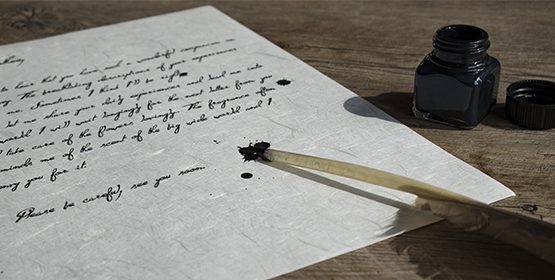 to hear that you have and a wonderful companion on
The breathtaking descriptions of your experiences
me. Sometimes I think I'll to sight
let me share your daily experiences and lead me into
world! I will wait longingly for the next letter from you
take care of the flowers lovingly. The fragrance often
reminds me of the scent of the big wide world and I
you for it.
Please be careful, see you soon.